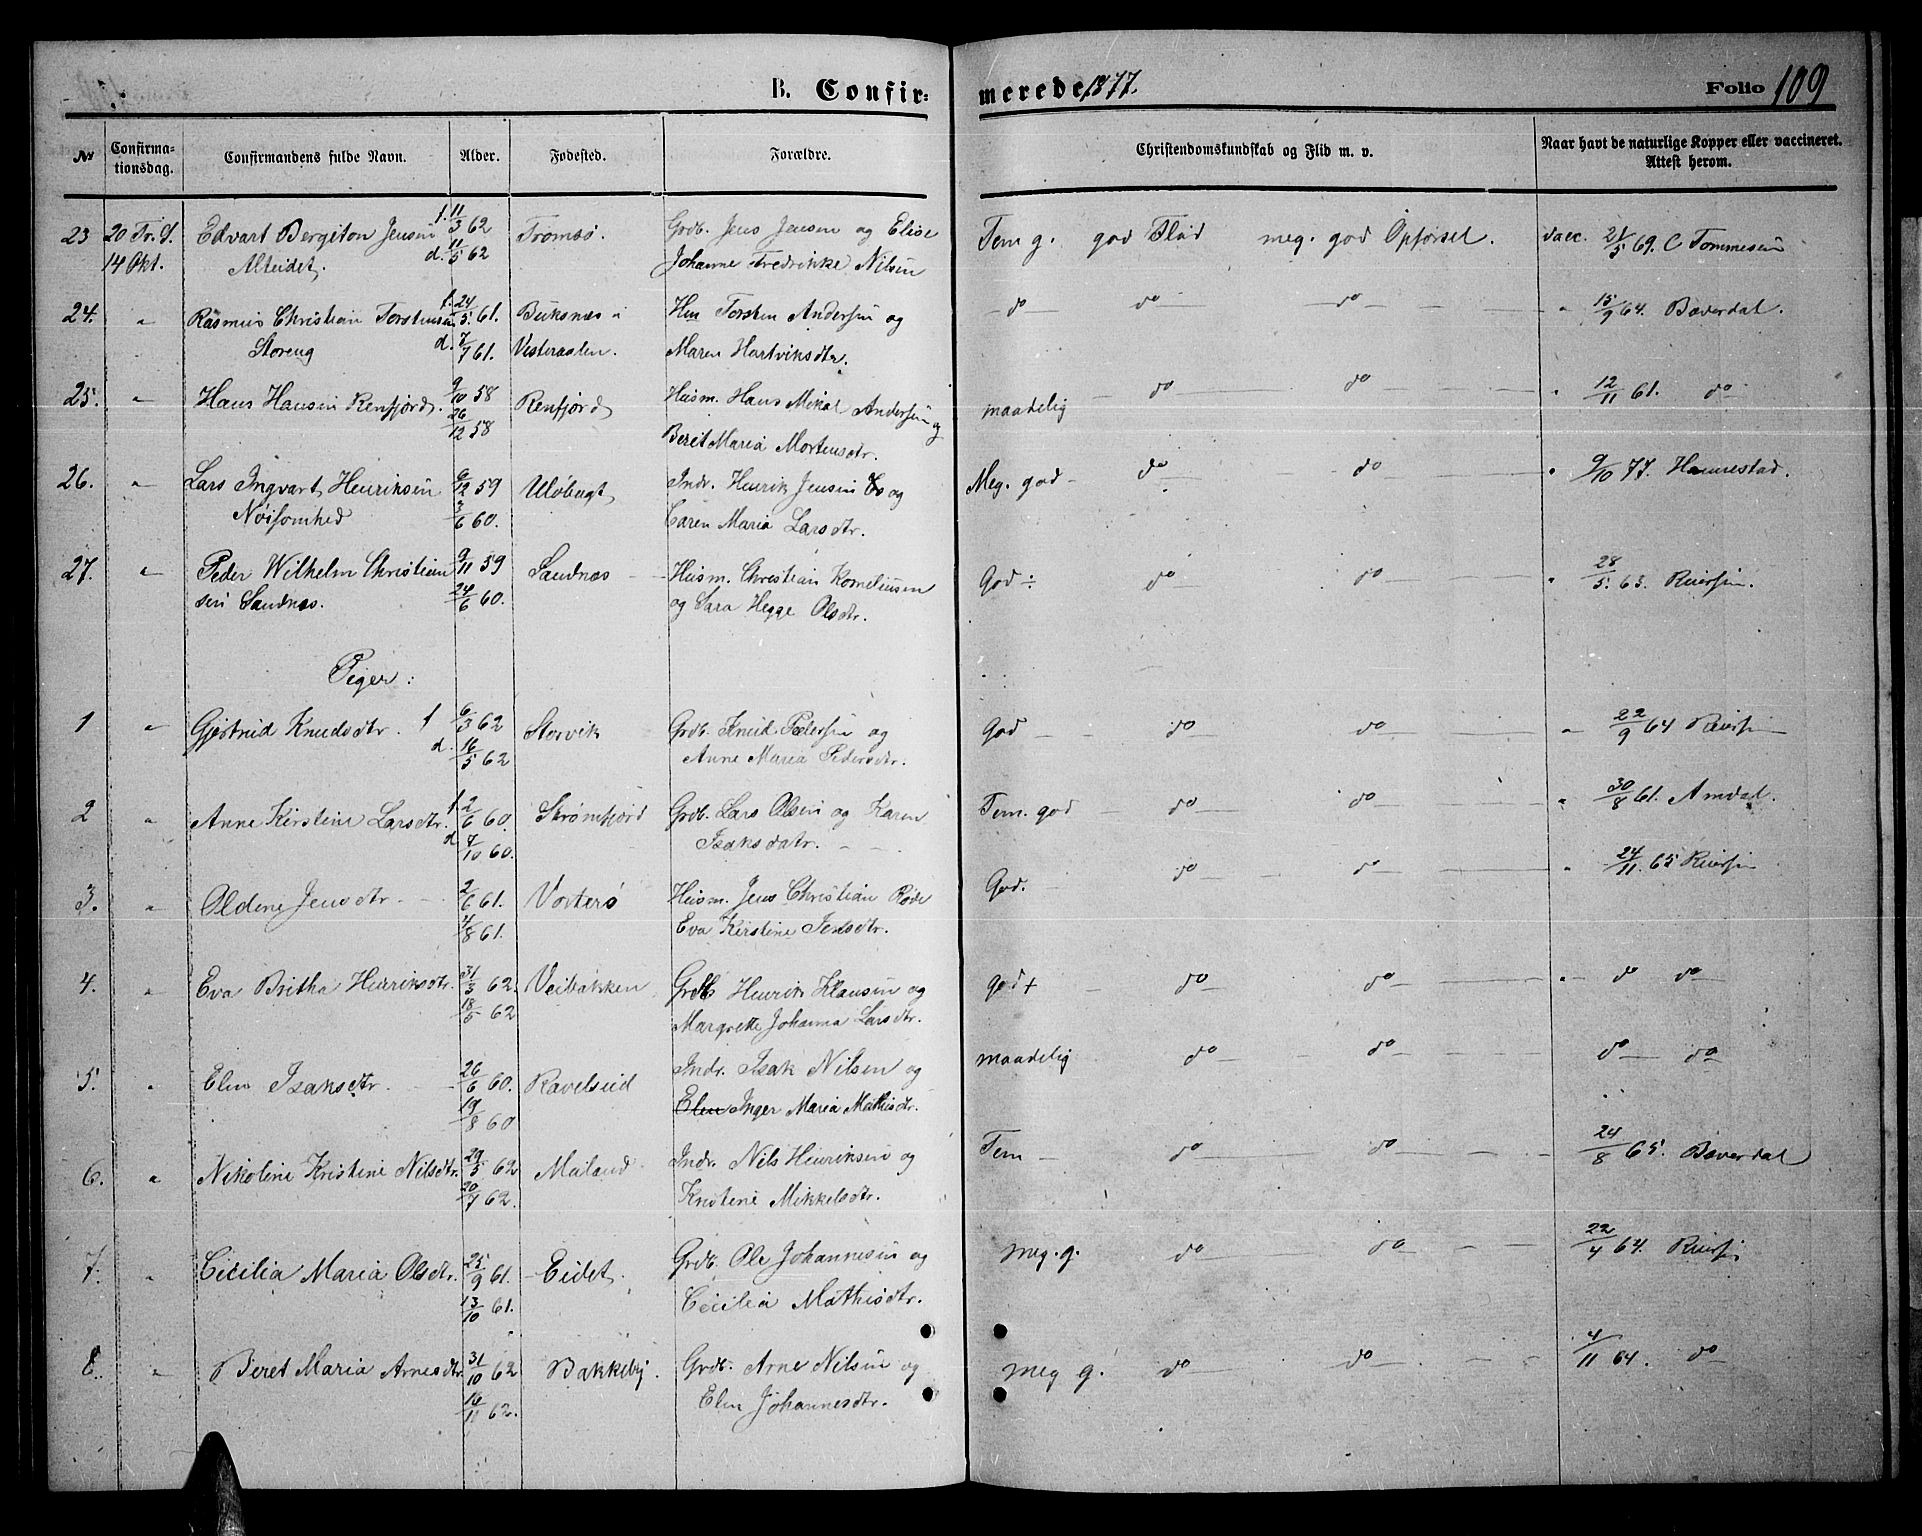 B. Confir:
merede 1877.
Folio 109
№
Confirma-
tionsdag.
Confirmandens fulde Navn.
Alder.
Fødested.
Forældre.
Christendomskundskab og Flid m. v.
Naar havt de naturlige Kopper eller vaccineret.
Attest herom.
23 20 Tr. S. Edvart Bergiton Jensen f. 11/3 62 Tromsø. Grdb. Jens Jensen og Elise Tem g. god Flid meg. god Opførsel. vacc. 21/5 69. C Tommesen
14 Okt. Alteidet. d. 11/5 62 Johanne Fredrikke Nilsen
24. " Rasmus Christian Torstensen f. 24/5 61. Buksnæs i Torsten Andersen og do do do " 15/9 64. Bæverdal.
Storeng d. 7/7 61. Vesteraalen. Maren Hartviksdtr.
25. " Hans Hansen Renfjord. 9/10 58 Renfjord Husm. Hans Mikal Andersen og maadelig do do " 12/11 61. do
26/12 58 Berit Maria Mortensdtr.
26. " Lars Ingvart Henriksen 9/12 59 Uløbugt Indr. Henrik Jensen og Meg. god do do " 9/10 77. Hannestad.
Nøisomhed 3/6 60. Caren Maria Larsdtr.
27. " Peder Wilhelm Christian 9/11 59 Sandnæs Husm. Christian Korneliussen God ÷ do do " 28/5 63. Reiersen.
sen Sandnæs. 24/6 60. og Sara Hegge Olsdtr.
Piger:
1 " Gjertrud Knudsdtr. f 6/3 62 Storvik Grdb. Knud Pedersen og God do do " 22/9 64 Reiersen
d. 16/5 62 Anne Maria Pedersdtr.
2 " Anne Kirstine Larsdtr. f 2/6 60. Skrømfjord Grdb. Lars Olsen og Karen Tem. god do do " 30/8 61. Amdal.
d 7/10 60. Isaksdatr.
3. " Oldene Jensdtr. 2/6 61. Vorterø Husm. Jens Christian Røde God. do do " 24/11 65 Reiersen
4/8 61. Eva Kirstine Jensdtr.
4. " Eva Britha Henriksdtr. 31/3 62. Veibakken Grdb Henrik Klausen og god + do do " do do
18/5 62 Margrette Johanna Larsdtr.
5. " Elen Isaksdtr. 26/6 60. Ravelseid Indr. Isak Nilsen og maadelig do do do do
19/8 60 Elen Inger Maria Mathisdtr.
6. " Nikoline Kristine Nilsdtr. 29/5 62 Mailand Indr. Nils Henriksen og Tem do do 24/8 65. Bæverdal
20/7 62. Kristine Mikkelsdtr.
7. " Cicilia Maria Olsdtr. 25/9 61. Eidet. Grdb. Ole Johannesen og meg. g. do do 22/4 64. Reiersen
13/10 61. Cecilia Mathisdtr.
8. " Beret Maria Arnesdtr 31/10 62 Bakkeby. Grdb. Arne Nilsen og meg g. do do 4/11 64. do
14/11 62. Elen Johannesdtr.